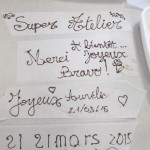 Super Atelier
à bientôt...
Merci Joyeux
Bravo!
Joyeux Aurélie
21/03/15
21 21 mars 2015